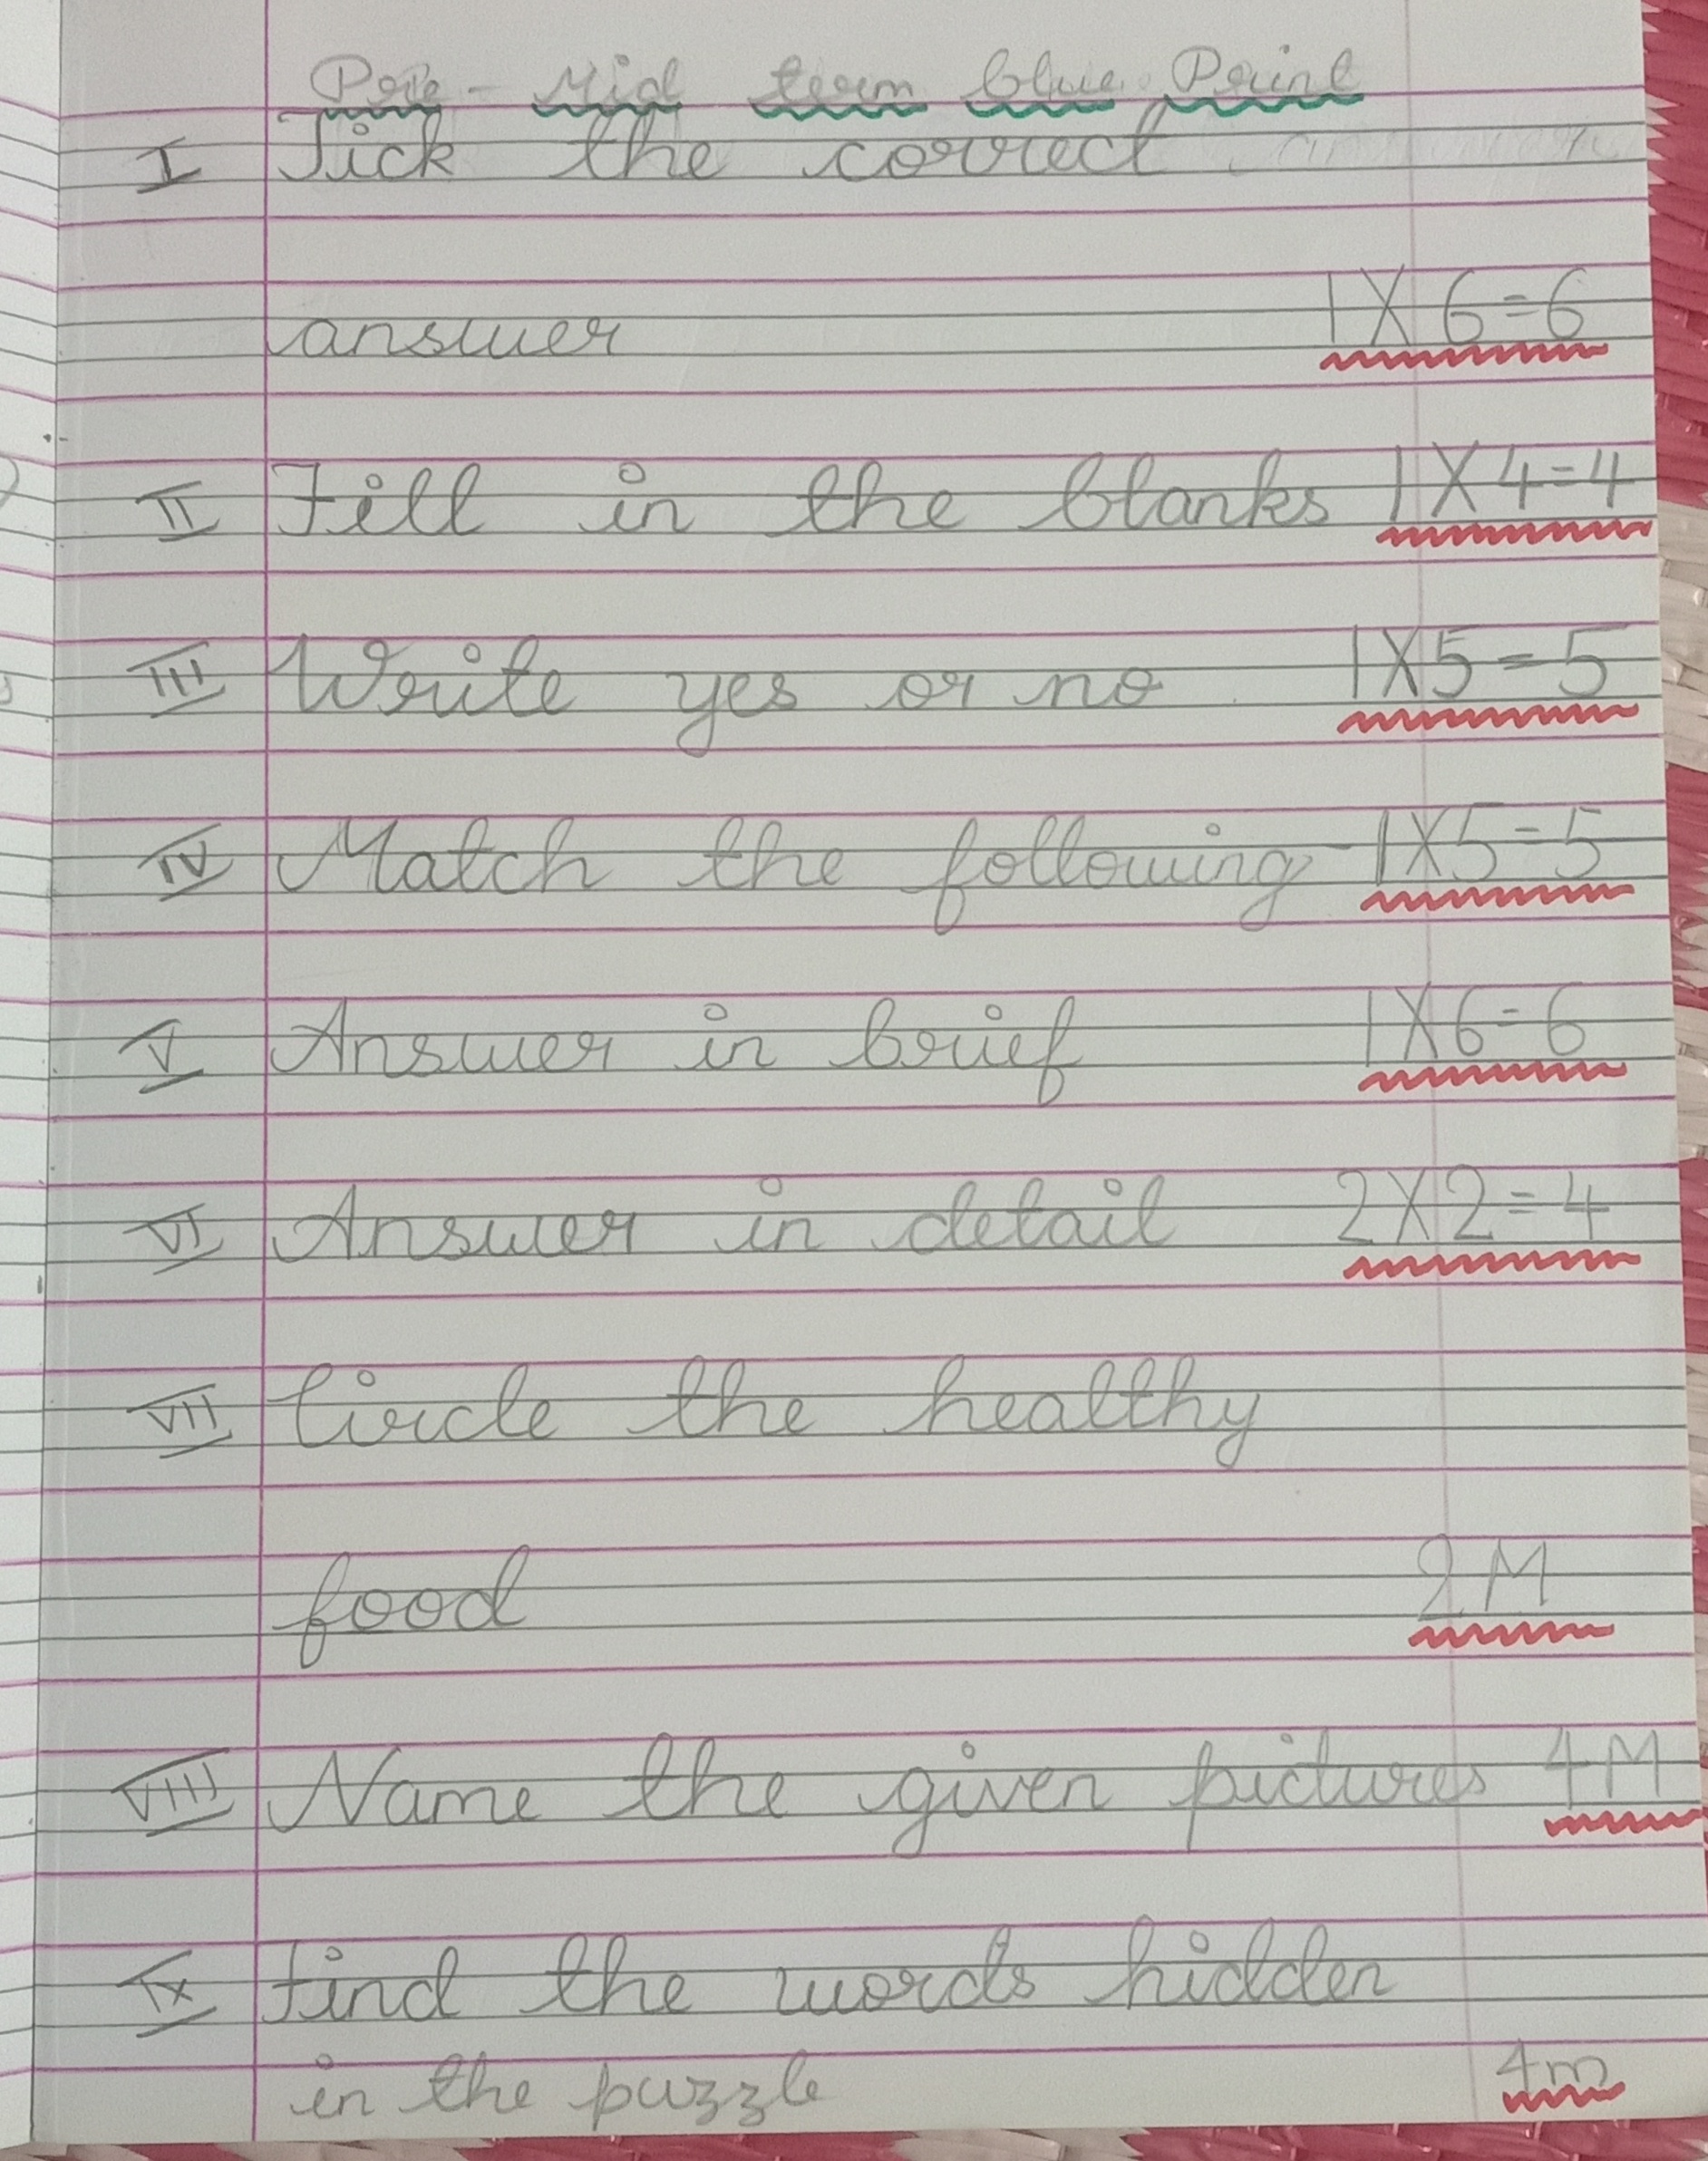 Pre - Mid term blue Print
I Tick the correct
answer 1X6=6
II Fill in the blanks 1X4=4
III Write yes or no 1X5=5
IV Match the following - 1X5=5
V Answer in brief 1X6=6
VI Answer in detail 2X2=4
VII Circle the healthy
food 2M
VIII Name the given pictures 4M
IX Find the words hidden
in the puzzle 4m